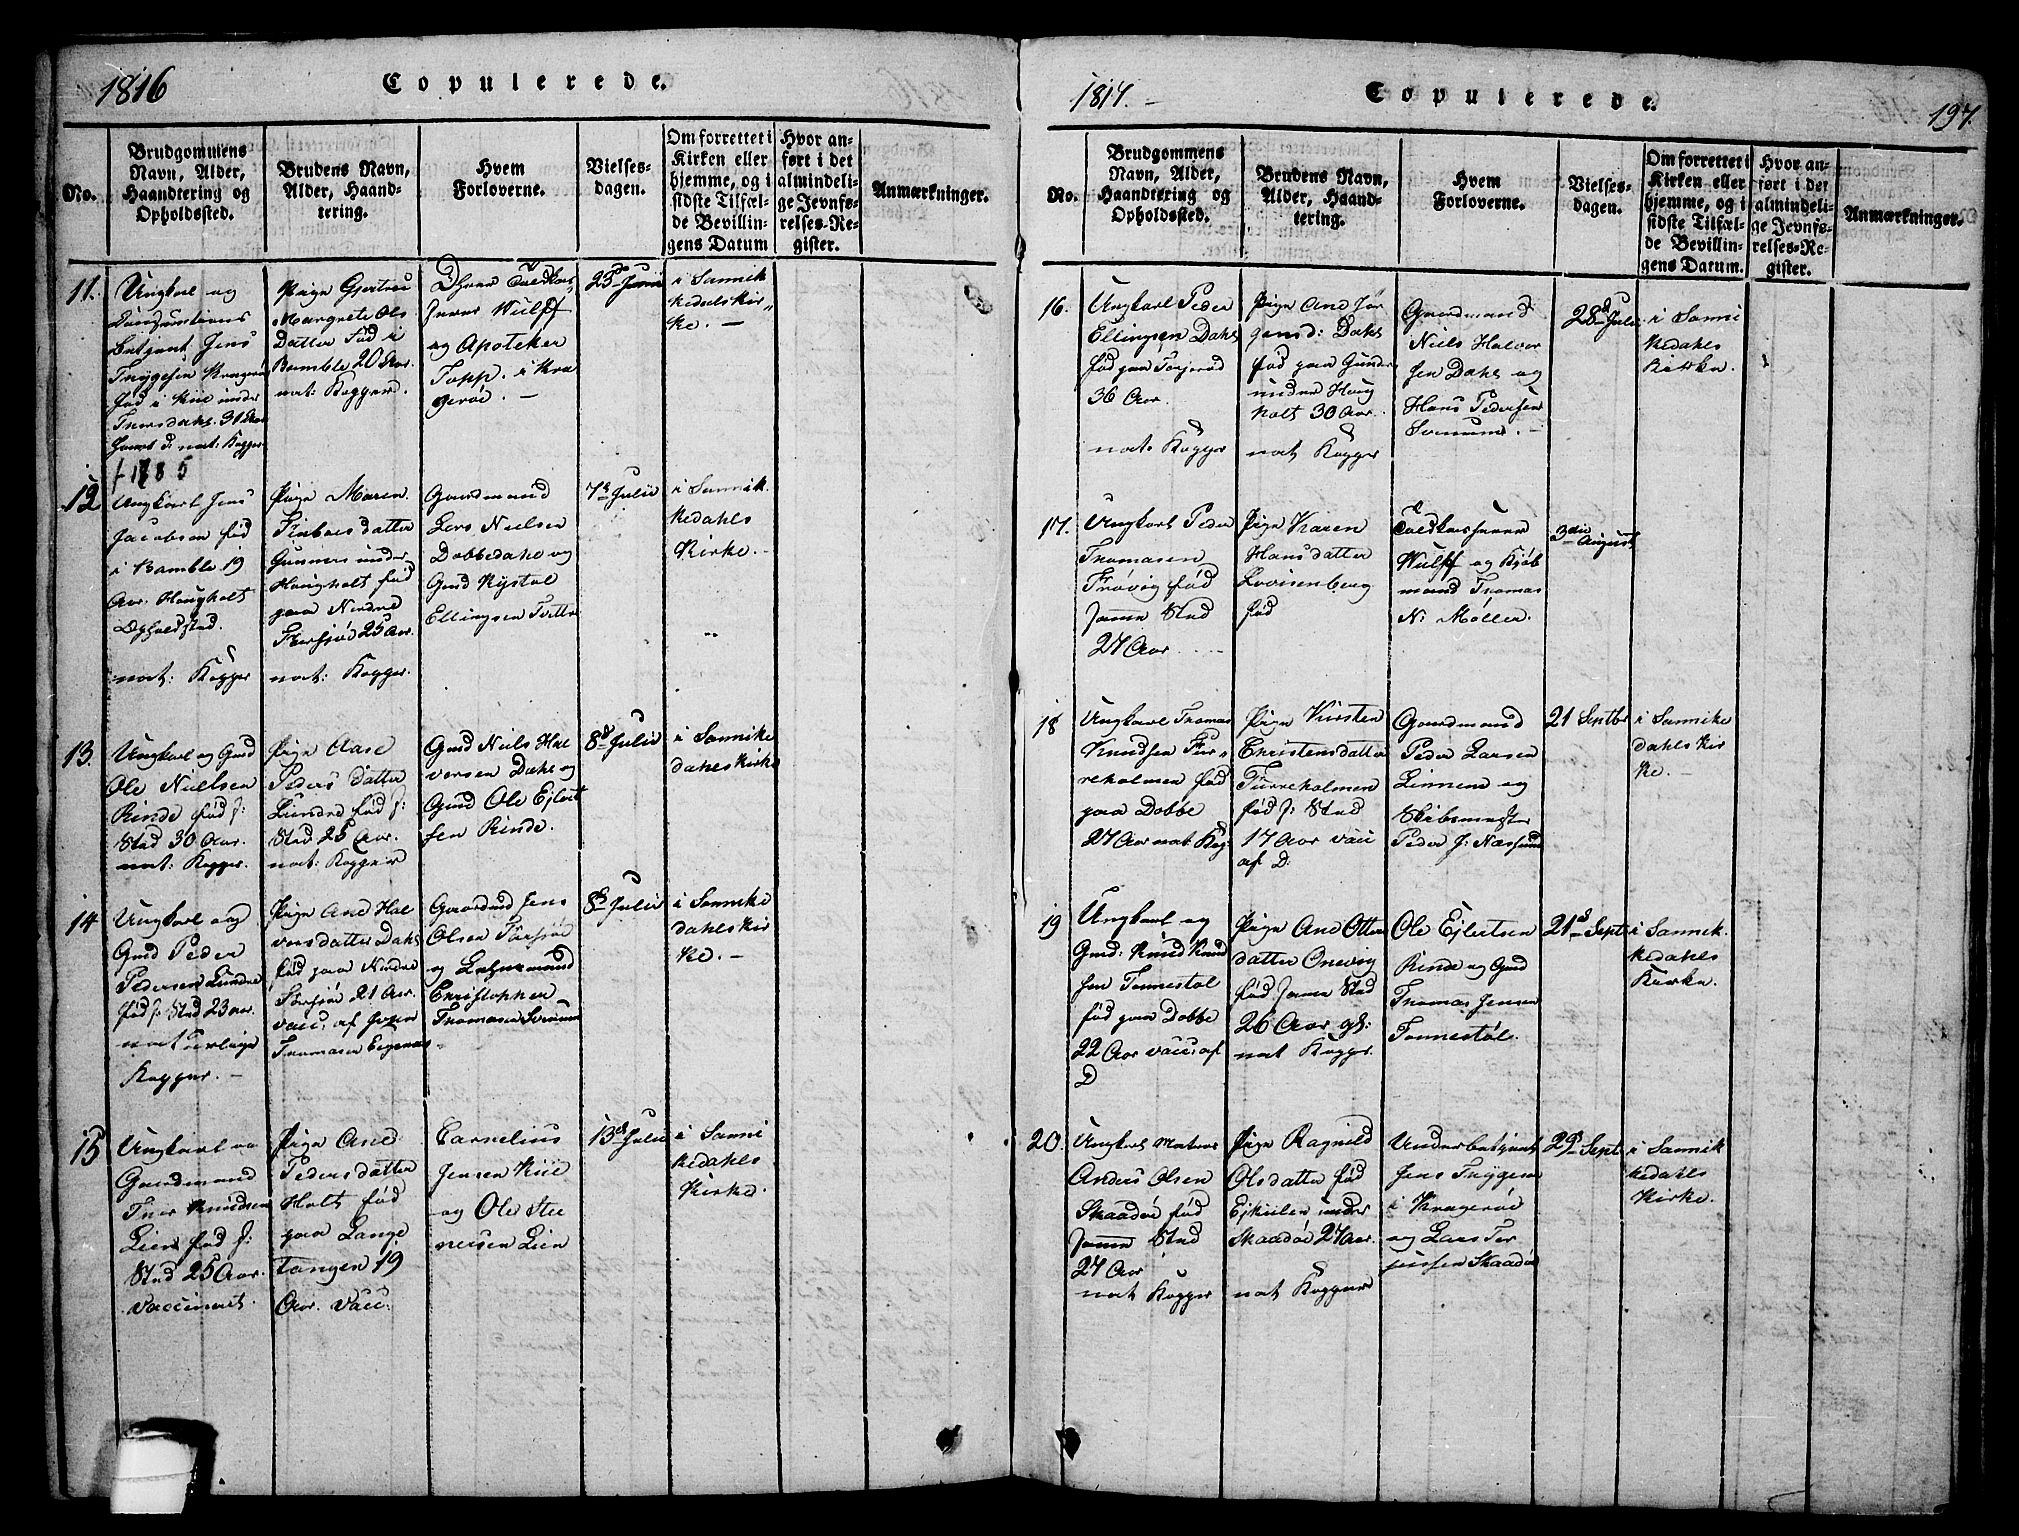 1816
Copulerede.
No.
Brudgommens
Navn, Alder,
Haandtering og
Opholdssted.
Brudens Navn,
Alder, Haand-
tering.
Hvem
Forloverne.
Vielses-
dagen.
Om forrettet i
Kirken eller
hjemme, og i
sidste Tilfæl-
de Bevillin-
gens Datum
Hvor an-
ført i det
almindeli-
ge Jevnfø-
relses-Re-
gister.
Anmærkninger.
11.
Ungkarl og
Betjent Jens
Trygesen Kragerøe
fød i under
31 Aar
nat: Kopper
f 1785
Pige Gjertrud
Margrete Ols
Datter Fød i
Bamble 20 Aar.
nat: Kopper.
Wulff
og Apoteker
Topp. i Kra
gerøe. -
25de Junii
i Sannik
kedals Kir
ke. -
12
Ungkarl Jens
Jacobsen fød
i Bamble 19
Aar. Haugholt
Opholdsted.
nat: Kopper
Pige Maren
datter
Gunners under
Haugholt fød
paa Nedre
25 Aar.
nat: Kopper.
Gaardmand
Lars Nielsen
Dobbedahl og
Gmd Kystol
Ellingsen Tvetter
7de Julii
i Sannik
kedahls
Kirke. -
13.
Ungkarl og Gmd
Ole Nielsen
Rinde fød s:
Sted 30 Aar.
nat: Kopper.
Pige Aase
Peders datter
Lundre fød s:
Sted 25 Aar.
nat: Kopper
Gmd Niels Hal
vorsen Dahl og
Gmd Ole Ejlert
sen Rinde.
8de Julii
i Sannike
dahls Kirke
14
Ungkarl og
Gmd Peder
Pedersen Lundre
fød s: Sted 23 aar.
naturlige
Kopper. -
Pige Ane Hal
vorsdatter Dahl
fød paa Nedre
21 Aar.
vacc: af John
Thomasen
Gaardmd Jens
Olsen
og Lehnsmand
Christopher
Thomasen
8de Julii
i Sannike
dahls Kir
ke. -
15
Ungkarl og
Gaardmand
Knudsen
Lien fød s:
Sted 25 Aar.
vaccineret.
Pige Ane
Pedersdatter
Holt fød
paa Lange
tangen 19
Aar. vacc:
Cornelius
Jensen Kiil
og Ole Ste
nersen Lien
13de Julii
i Sanni
kedahls
Kirke.
1817. -
Copulerede.
197.
No.
Brudgommens
Navn, Alder,
Haandtering og
Opholdssted.
Brudens Navn,
Alder, Haand-
tering.
Hvem
Forloverne.
Vielses-
dagen.
Om forrettet i
Kirken eller
hjemme, og i
sidste Tilfæl-
de Bevillin-
gens Datum.
Hvor an-
ført i det
almindeli-
ge Jevnfø-
relses-Re-
gister.
Anmærkninger.
16.
Ungkarl Peder
Ellingsen Dahl
fød paa
36 Aar.
nat: Kopper
Pige Ane Jør
gensd: Dahl
fød paa
under Haug
holt 30 Aar.
nat Kopper
Gaardmand
Niels Halvor
sen Dahl og
Hans Pedersen
28de Julii
i Sanni
kedahls
Kirke.
17.
Ungkarl Peder
Thomasen
Frøvig fød
samme Sted
27 Aar
Pige Karen
Hansdatter
Lovisenberg
fød
Wulff og Kjøb
mand Thomas
N: Møller.
3die August
18
Ungkarl Thomas
Knudsen Fur
reholmen fød
paa Dobbe
27 Aar nat Kop:
Pige Kirsten
Christensdatter
Furreholmen
fød s: Sted
17 Aar vacc
af D:
Gaardmand
Peder Larsen
Linnene og
Skibsmester
Peder J: Næssund
21 Septbr
i Sannike
dahls Kir
ke. -
19
Ungkarl og
Gmd: Knud Knud
sen Tonnestøl
fød paa Dobbe
22 Aar vacc: af
D
Pige Ane Otter
datter Onevig
fød samme Sted
26 Aar gl:
nat Kopper.
Ole Ejlertsen
Rinde og Gmd
Thomas Jensen
Tonnestøl.
21de Septr
i Sannik
kedahls
Kirke.
20.
Ungkarl Matros
Anders Olsen
Skaadøe fød
samme Sted
27 Aar
nat Kopper
Pige Ragnild
Olsdatter fød
Ejkulen under
Skaadøe 27 Aar.
nat Kopper
Underbetjent
Jens Trygesen
i Kragerøe
og Lars Ter
jussen Skaadøe
29de Septr
i Sannik
kedahls
Kirke.